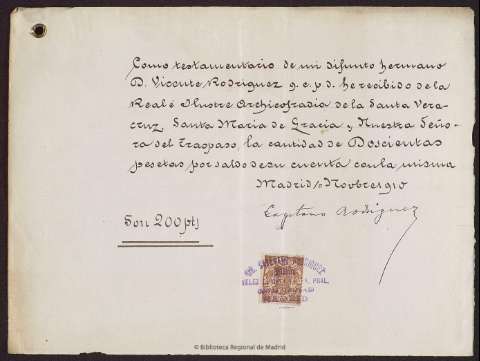 Como testamentario de mi difunto hermano
D. Vicente Rodriguez q.e.p.d. he recibido de la
Real é Ilustre Archicofradia de la Santa Vera-
cruz, Santa Maria de Gracia y Nuestra Seño-
ra del Traspaso, la cantidad de Doscientas
pesetas por saldo de su cuenta con la misma
Madrid Novbre 1910
Cayetano Rodriguez
Son 200 pts
CAYETANO RODRIGUEZ
PRAL.
MADRID
© Biblioteca Regional de Madrid